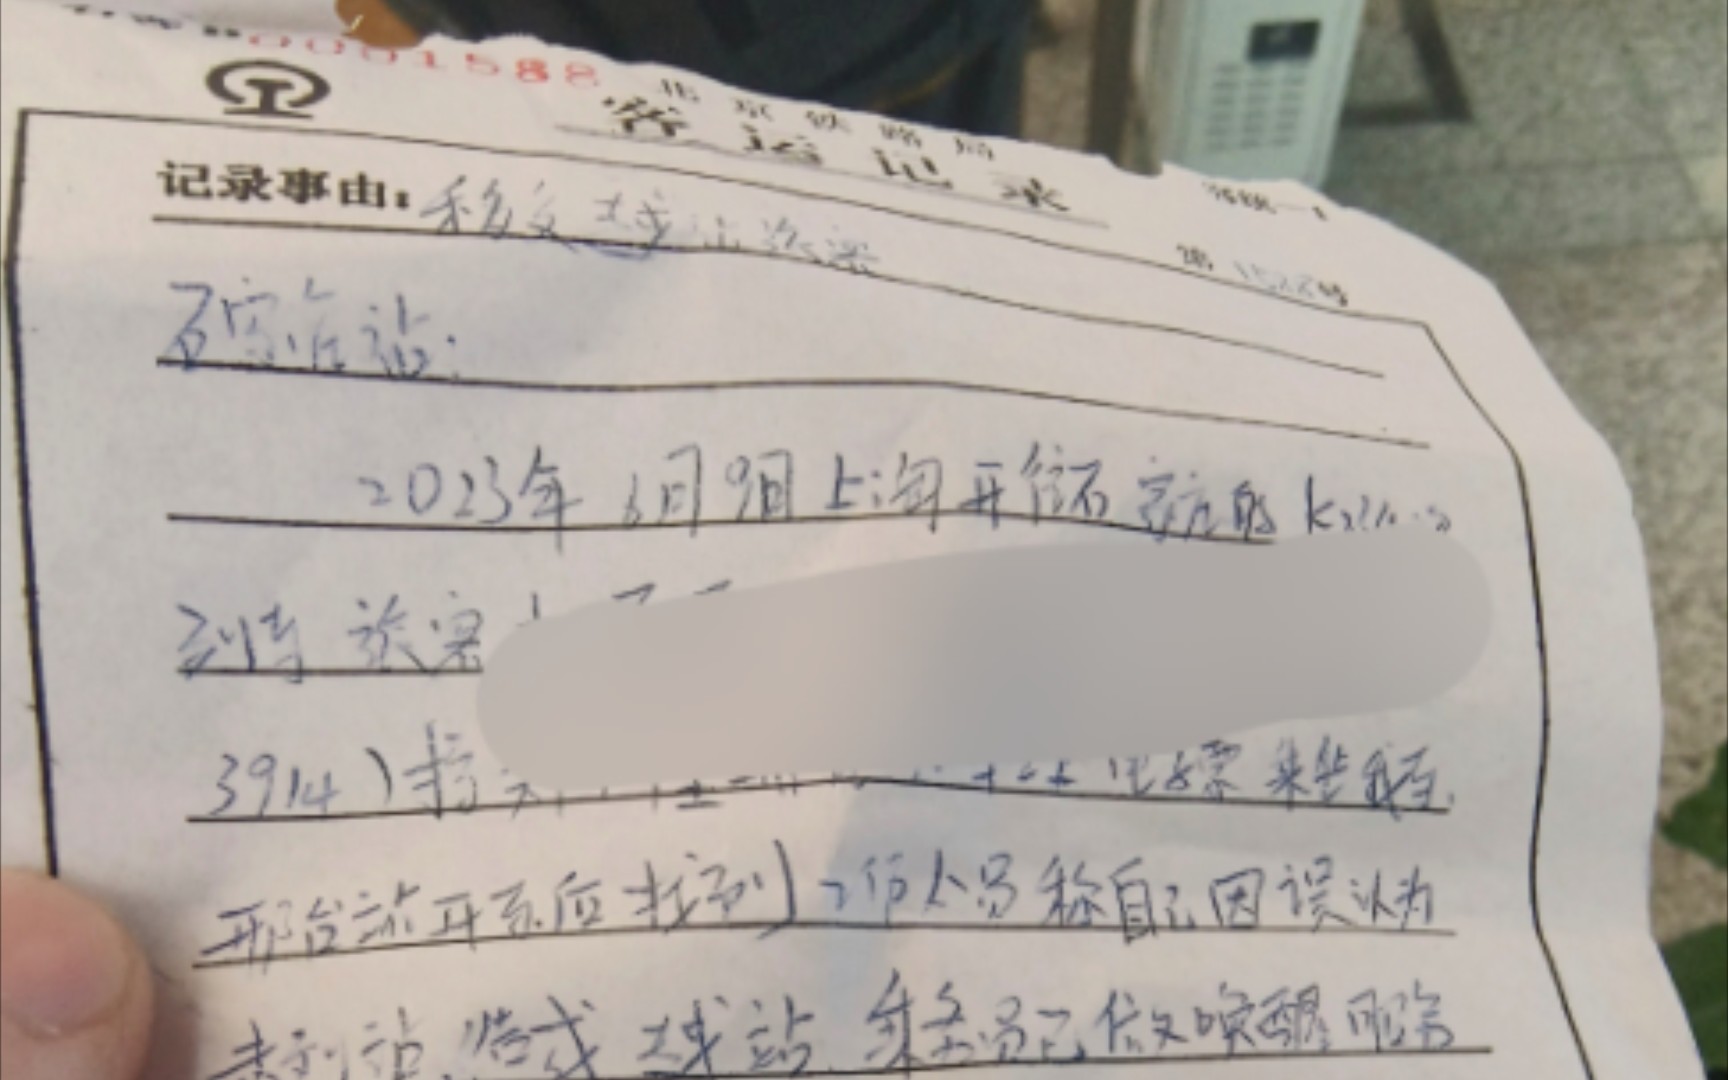 0001588
北京铁路局
客运记录
记录事由：移交越站旅客
第1588号
石家庄站：
2023年6月9日上海开往石家庄的K
到持旅客
3914）持 票乘坐我车
邢台站开车后找到工作人员称自己因误认为
未到站，造成越站，乘务员已做唤醒服务